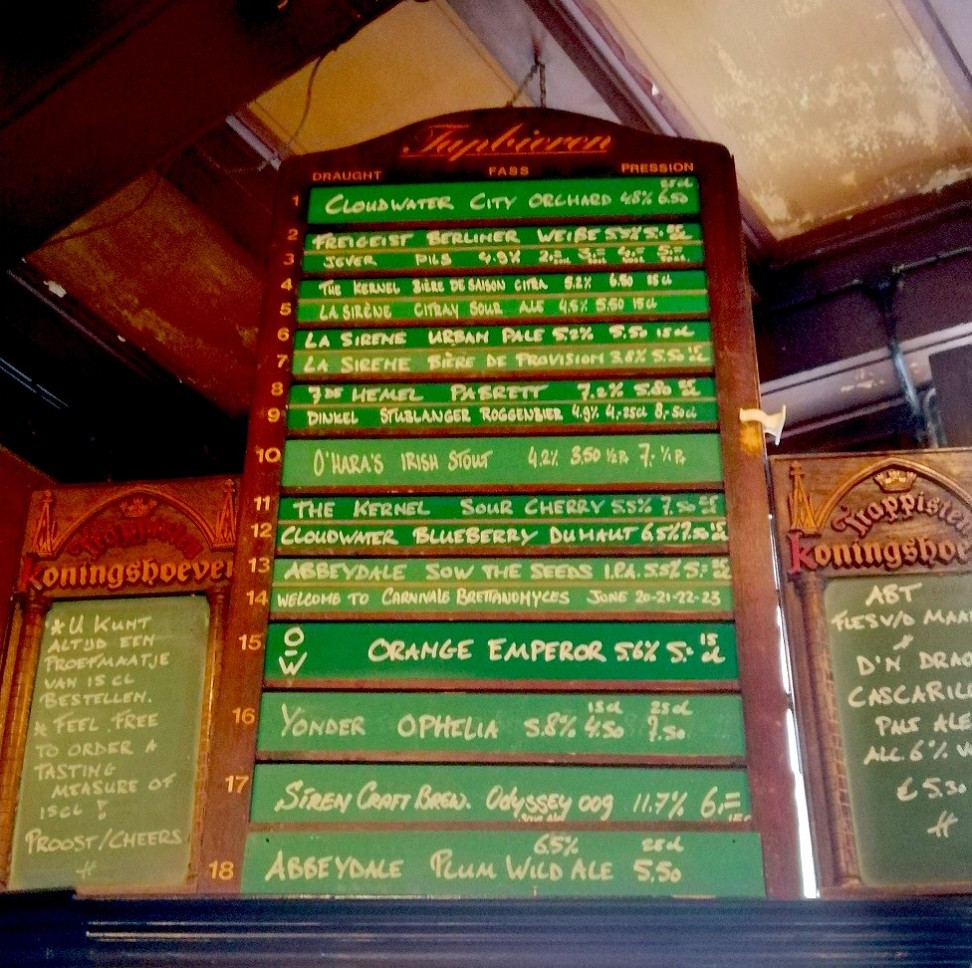 Tapbieren
DRAUGHT FASS PRESSION
25cl
1 CLOUDWATER CITY ORCHARD 4.8% 6.50
2 FREIGEIST BERLINER WEIßE 5.-
3 JEVER PILS 4.9%
4 THE KERNEL BIÈRE DE SAISON CITRA 5.2% 6.50 15cl
5 LA SIRÈNE CITRAY SOUR ALE 4.5% 5.50 15cl
6 LA SIRENE URBAN PALE 5.2% 5.50 15cl
7 LA SIRENE BIÈRE DE PROVISION 3.8% 5.50
8 7DE HEMEL PABRETT 7.2% 5.80
9 DINKEL STUBLANGER ROGGENBIER 4.9% 4,-25cl 8,-50cl
10 O'HARA'S IRISH STOUT 4.2% 3.50 ½P. 7.- ¼P.
11 THE KERNEL SOUR CHERRY 5.5% 7.50
12 CLOUDWATER BLUEBERRY DUHAUT 6.5% 7.50
13 ABBEYDALE SOW THE SEEDS I.P.A. 5.5% 5.-
14 WELCOME TO CARNIVALE BRETTANOMYCES JUNE 20-21-22-23
15 O/W ORANGE EMPEROR 5.6% 5.- 15cl
15cl 25cl
16 YONDER OPHELIA 5.8% 4.50 7.50
17 SIREN CRAFT BREW. ODYSSEY 009 11.7% 6,=
6.5% 25cl
18 ABBEYDALE PLUM WILD ALE 5.50
Trappisten
Koningshoeven
* U KUNT
ALTIJD EEN
PROEFMAATJE
VAN 15 CL
BESTELLEN.
* FEEL FREE
TO ORDER A
TASTING
MEASURE OF
15CL !
PROOST/CHEERS
#
Trappisten
Koningshoe
ABT
FLES V/D MAA
D'N DRA
CASCARILL
PALE ALE
ALC. 6% V
€ 5.30
#